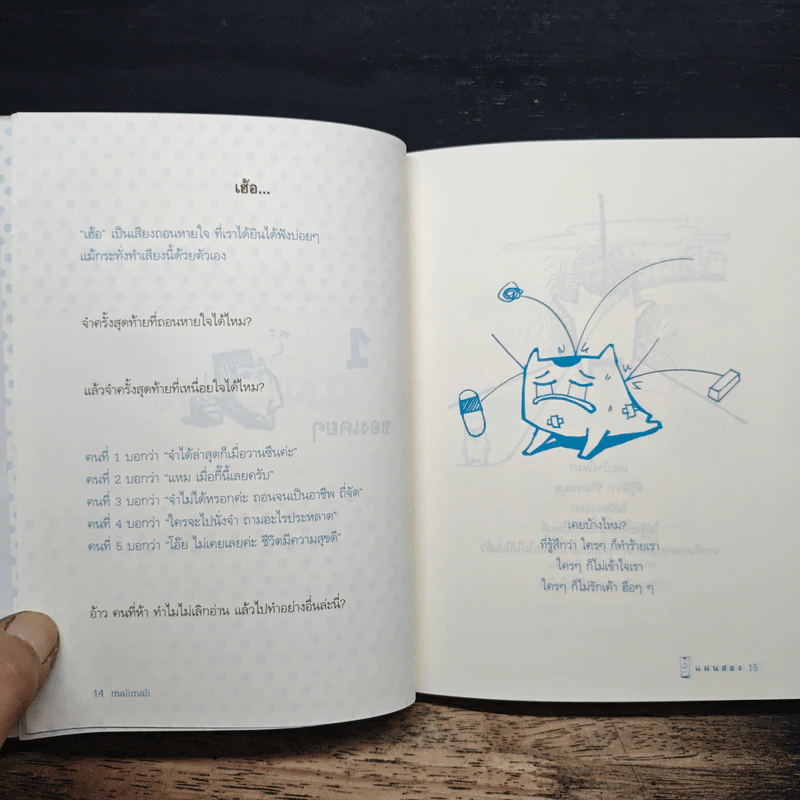 เฮ้อ...
"เฮ้อ" เป็นเสียงถอนหายใจ ที่เราได้ยินได้ฟังบ่อยๆ
แม้กระทั่งทำเสียงนี้ด้วยตัวเอง
จำครั้งสุดท้ายที่ถอนหายใจได้ไหม?
แล้วจำครั้งสุดท้ายที่เหนื่อยใจได้ไหม?
คนที่ 1 บอกว่า "จำได้ล่าสุดก็เมื่อวานซืนค่ะ"
คนที่ 2 บอกว่า "แหม เมื่อกี๊นี้เลยครับ"
คนที่ 3 บอกว่า "จำไม่ได้หรอกค่ะ ถอนจนเป็นอาชีพ ถี่จัด"
คนที่ 4 บอกว่า "ใครจะไปนั่งจำ ถามอะไรประหลาด"
คนที่ 5 บอกว่า "โอ๊ย ไม่เคยเลยค่ะ ชีวิตมีความสุขดี"
อ้าว คนที่ห้า ทำไมไม่เลิกอ่าน แล้วไปทำอย่างอื่นล่ะนี่?
14 malimali
เคยบ้างไหม?
ที่รู้สึกว่า ใครๆ ก็ทำร้ายเรา
ใครๆ ก็ไม่เข้าใจเรา
ใครๆ ก็ไม่รักเค้า ฮือๆ ๆ
แผนสอง 15